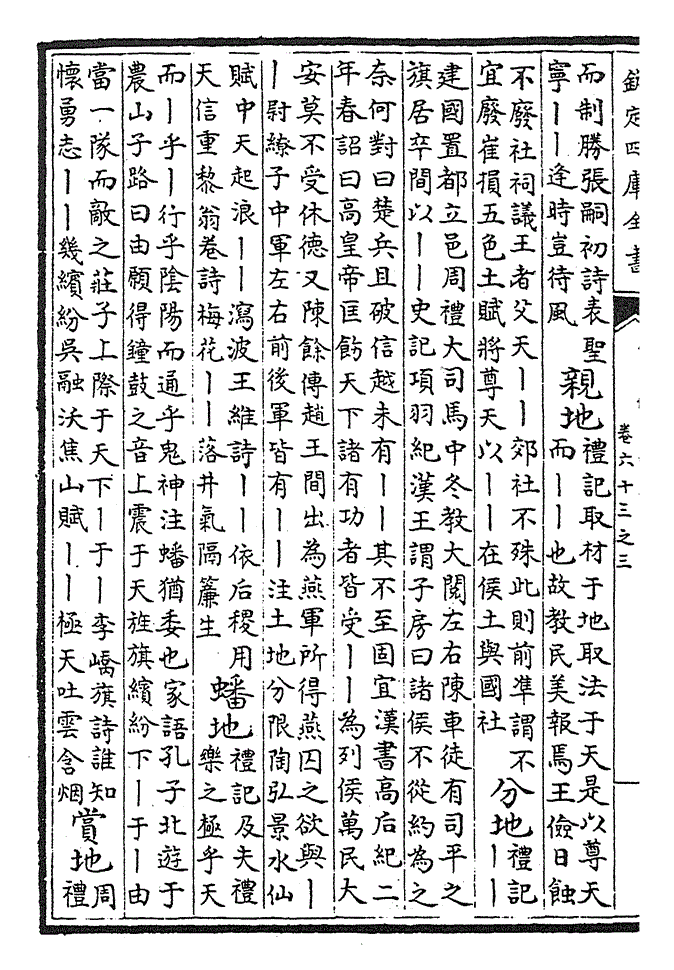 欽定四庫全書
卷六十三之三
而制勝張嗣初詩表聖
寧丨丨逢時豈待風
親地
禮記取材于地取法于天是以尊天
而丨丨也故教民美報焉王儉日蝕
不廢社祠議王者父天丨丨郊社不殊此則前準謂不
宜廢崔損五色土賦將尊天以丨丨在侯土與國社
分地
禮記
丨丨
建國置都立邑周禮大司馬中冬教大閱左右陳車徒有司平之
旗居卒間以丨丨史記項羽紀漢王謂子房曰諸侯不從約為之
奈何對曰楚兵且破信越未有丨丨其不至固宜漢書高后紀二
年春詔曰高皇帝匡飭天下諸有功者皆受丨丨為列侯萬民大
安莫不受休德又陳餘傳趙王間出為燕軍所得燕囚之欲與丨
丨尉繚子中軍左右前後軍皆有丨丨注土地分限陶弘景水仙
賦中天起浪丨丨瀉波王維詩丨丨依后稷用
天信重黎翁卷詩梅花丨丨落井氣隔簾生
蟠地
禮記及夫禮
樂之極乎天
而丨乎丨行乎陰陽而通乎鬼神注蟠猶委也家語孔子北遊于
農山子路曰由願得鐘鼓之音上震于天旌旗繽紛下丨于丨由
當一隊而敵之莊子上際于天下丨于丨李嶠旗詩誰知
懷勇志丨丨幾繽紛吳融沃焦山賦丨丨極天吐雲含烟
賞地
周
禮